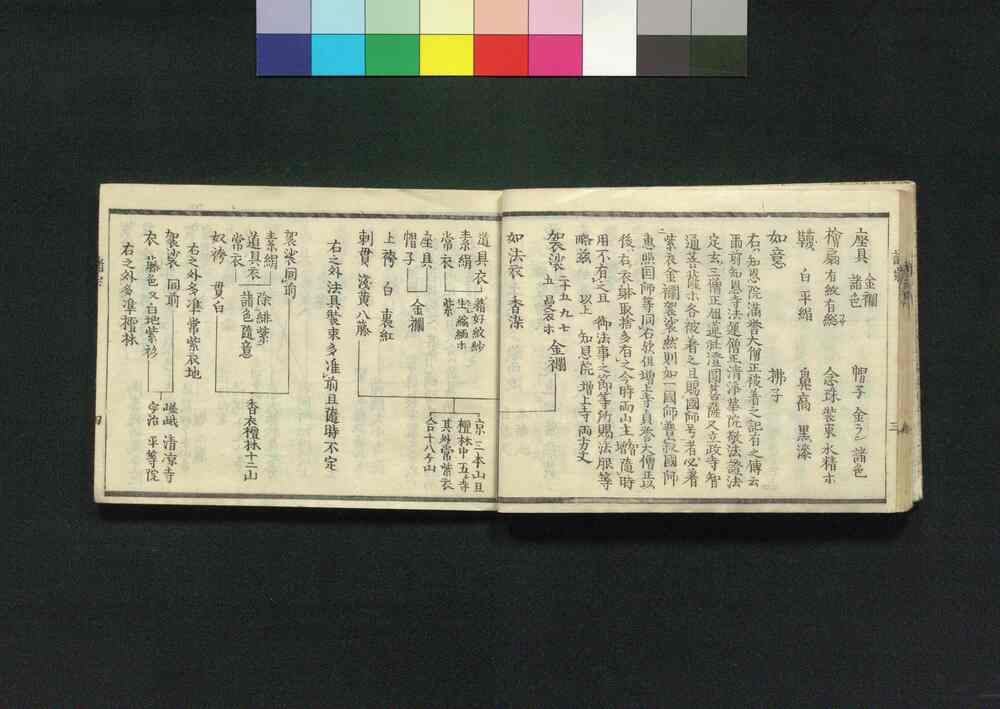 座具 金襴 諸色 帽子 金ラン 諸色
檜扇有紋有総 念珠装束水精ホ
韈 白平絹 鼻高 黒漆
如意 拂子
右知恩院満誉大僧正被着之記有之傳云
而前知恩寺法蓮僧正清浄華院敬法證法
定玄三僧正祖蓮社澄圓菩薩又立政寺智
通菩薩ホ各被着之且賜國師号者必着
紫衣金襴袈裟然則如一國師普寂國師
惠照国師等同右欤但増上寺貞誉大僧正以
後右衣躰取捨多有之今時両山主増隨時
用不有之且 御法事之節等所賜法服等
略茲 以上 知恩院 増上寺両方丈
袈裟 二十五九七 五 曼衣ホ 金襴
如法衣 香染
道具衣 着好紋紗
素絹 生縮緬ホ
常衣 紫
座具
帽子 金襴
上袴 白 裏紅
刺貫 浅黄八藤
京三本山且
檀林中五寺
其外常紫衣
合十八ケ山
右之外法具装束多准前且隨時不定
袈裟 同前
素絹
道具衣 除緋紫
常衣 諸色隨意
奴袴 貫白
香衣檀林十二山
右之外多准常紫衣地
袈裟 同前
衣 藤色又白地紫衫
嵯峨 清凉寺
宇治 平等院
右之外多准檀林